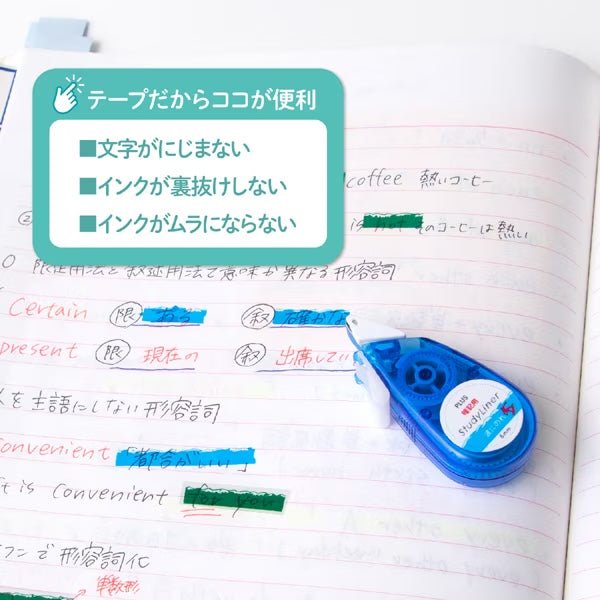 テープだからココが便利
■文字がにじまない
■インクが裏抜けしない
■インクがムラにならない
coffee 熱いコーヒー
② is hot そのコーヒーは熱い
限定用法と叙述用法で意味が異なる形容詞
Certain 限 ある 叙 確かな
present 限 現在の 叙 出席してい
を主語にしない形容詞
convenient 「都合がいい」
It is convenient for you
で形容詞化
単数形
PLUS
暗記用
StudyLiner
6mm